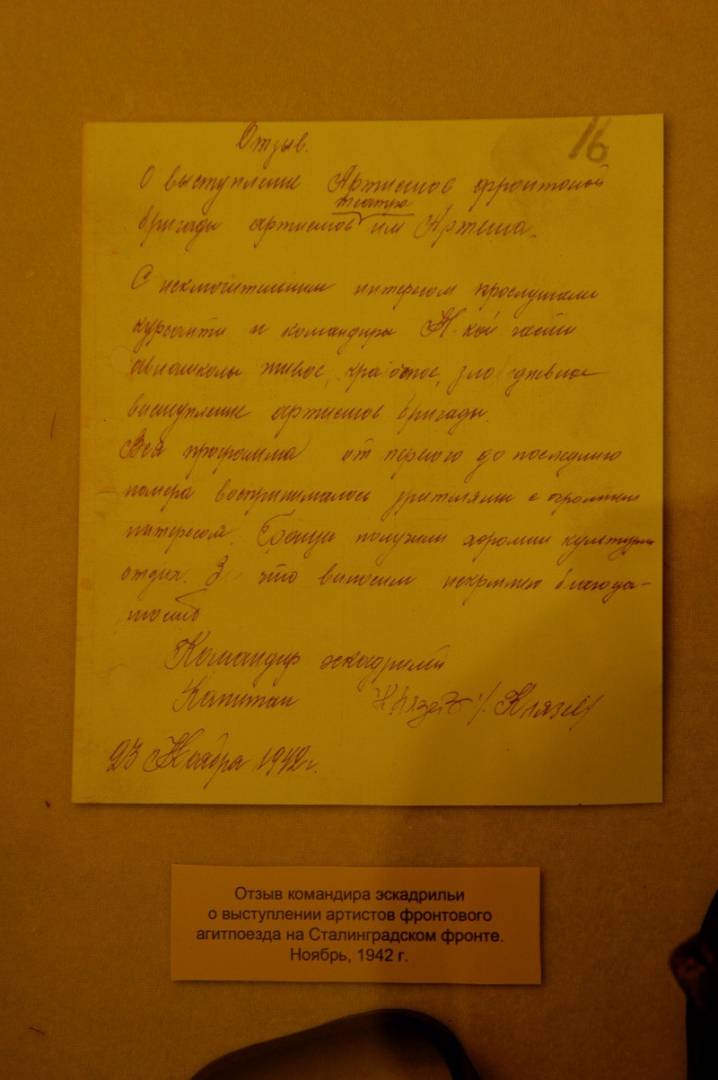 16
Отзыв.
О выступление Артистов фронтовой
бригады артистов театра им Артема.
С исключительным интересом прослушали
курсанты и командиры Н-кой части
авиашколы живое, краткое, злодневное
выступление артистов бригады.
Вся программа от первого до последнего
номера воспринималось зрителями с огромным
интересом. Бойцы получили хороший культурный
отдых. За это выносим искреннею благода-
ность
Командир эскадрильи
Капитан Князев /Князев/
23 Ноября 1942 г.
Отзыв командира эскадрильи
о выступлении артистов фронтового
агитпоезда на Сталинградском фронте.
Ноябрь, 1942 г.